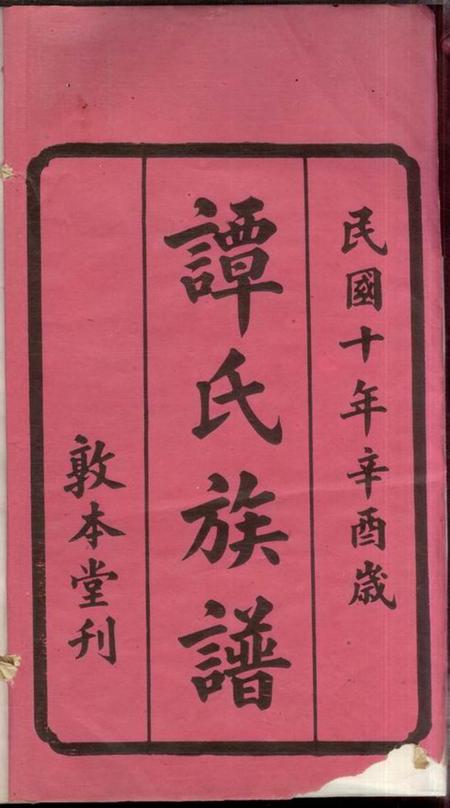 民國十年辛酉歲
譚氏族譜
敦本堂刋